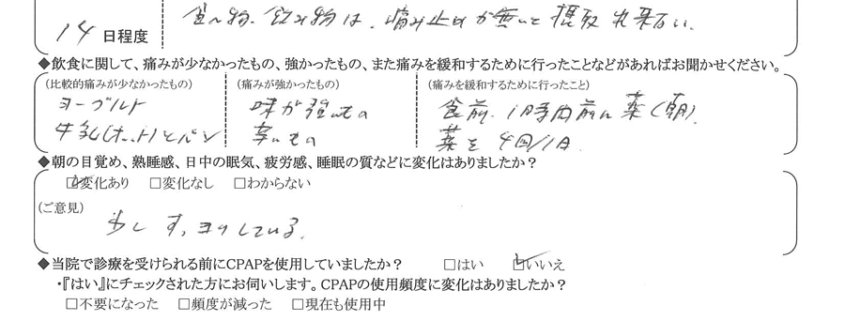 食べ物、飲み物は、痛み止めが無いと摂取出来ない。
14 日程度
◆飲食に関して、痛みが少なかったもの、強かったもの、また痛みを緩和するために行ったことなどがあればお聞かせください。
(比較的痛みが少なかったもの) (痛みが強かったもの) (痛みを緩和するために行ったこと)
ヨーグルト 味が強いもの 食前、1時間前に薬(朝)
牛乳(ホット)とパン 辛いもの 薬を4回/1日
◆朝の目覚め、熟睡感、日中の眠気、疲労感、睡眠の質などに変化はありましたか?
☑変化あり □変化なし □わからない
(ご意見)
少しすっきりしている。
◆当院で診療を受けられる前にCPAPを使用していましたか? □はい ☑いいえ
・『はい』にチェックされた方にお伺いします。CPAPの使用頻度に変化はありましたか?
□不要になった □頻度が減った □現在も使用中